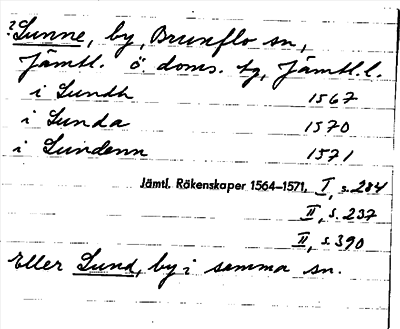 ?Sunne, by, Brunflo sn,
Jämtl. ö. doms. tg, Jämtl. l.
i Sundh 1567
i Sunda 1570
i Sundenn 1571
Jämtl. Räkenskaper 1564–1571. I, s. 284
II, s. 237
II, s. 390
Eller Sund, by i samma sn.